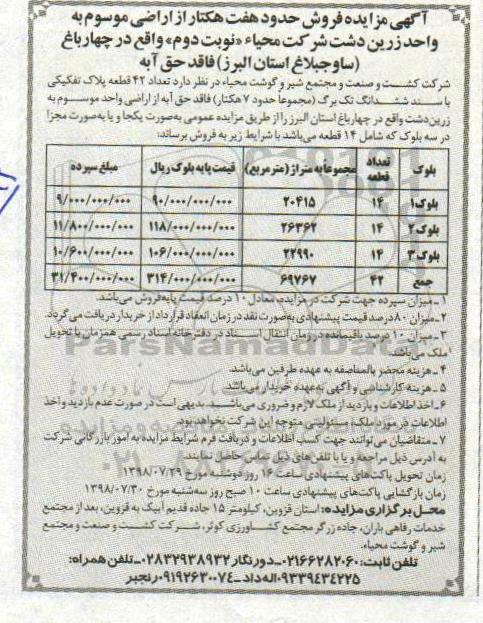 آگهی مزایده فروش حدود هفت هکتار از اراضی موسوم به
واحد زرین دشت شرکت محیاء «نوبت دوم» واقع در چهارباغ
(ساوجبلاغ استان البرز) فاقد حق آبه
شرکت کشت و صنعت و مجتمع شیر و گوشت محیاء در نظر دارد تعداد ۴۲ قطعه پلاک تفکیکی
با سند ششدانگ تک برگ (مجموعاً حدود ۷ هکتار) فاقد حق آبه از اراضی واحد موسوم به
زرین‌دشت واقع در چهارباغ استان البرز را از طریق مزایده عمومی به‌صورت یکجا و یا به‌صورت مجزا
در سه بلوک که شامل ۱۴ قطعه می‌باشد با شرایط زیر به فروش برساند:
بلوک تعداد قطعه مجموعا به متراژ (متر مربع) قیمت پایه بلوک ریال مبلغ سپرده
بلوک۱ ۱۴ ۲۰۴۱۵ ۹۰/۰۰۰/۰۰۰/۰۰۰ ۹/۰۰۰/۰۰۰/۰۰۰
بلوک۲ ۱۴ ۲۶۳۶۲ ۱۱۸/۰۰۰/۰۰۰/۰۰۰ ۱۱/۸۰۰/۰۰۰/۰۰۰
بلوک۳ ۱۴ ۲۲۹۹۰ ۱۰۶/۰۰۰/۰۰۰/۰۰۰ ۱۰/۶۰۰/۰۰۰/۰۰۰
جمع ۴۲ ۶۹۷۶۷ ۳۱۴/۰۰۰/۰۰۰/۰۰۰ ۳۱/۴۰۰/۰۰۰/۰۰۰
۱ـ میزان سپرده جهت شرکت در مزایده، معادل ۱۰ درصد قیمت پایه فروش می‌باشد.
۲ـ میزان ۸۰ درصد قیمت پیشنهادی به‌صورت نقد در زمان انعقاد قرارداد از خریدار دریافت می گردد.
۳ـ میزان ۱۰ درصد باقیمانده در زمان انتقال اسناد در دفترخانه اسناد رسمی همزمان با تحویل
ملک می‌باشد.
۴ـ هزینه محضر بالمناصفه به عهده طرفین می‌باشد.
۵ـ هزینه کارشناسی و آگهی به عهده خریدار می‌باشد
۶ـ اخذ اطلاعات و بازدید از ملک لازم و ضروری می‌باشد. بدیهی است در صورت عدم بازدید و اخذ
اطلاعات در مورد ملک، مسئولیتی متوجه این شرکت نخواهد بود.
۷ـ متقاضیان می‌توانند جهت کسب اطلاعات و دریافت فرم شرایط مزایده به امور بازرگانی شرکت
به آدرس ذیل مراجعه و یا با تلفن‌های ذیل تماس حاصل نمایند.
زمان تحویل پاکت‌های پیشنهادی ساعت ۱۶ روز دوشنبه مورخ ۱۳۹۸/۰۷/۲۹
زمان بازگشایی پاکت‌های پیشنهادی ساعت ۱۰ صبح روز سه‌شنبه مورخ ۱۳۹۸/۰۷/۳۰
محل برگزاری مزایده: استان قزوین، کیلومتر ۱۵ جاده قدیم آبیک به قزوین، بعد از مجتمع
خدمات رفاهی باران، جاده زرگر مجتمع کشاورزی کوثر، شرکت کشت و صنعت و مجتمع
شیر و گوشت محیاء.
تلفن ثابت: ۰۲۱۶۶۲۸۲۰۶۰ـ دورنگار ۰۲۸۳۲۹۳۸۹۳۲ـ تلفن همراه:
۰۹۳۳۹۴۳۴۲۲۵ اله‌داد ـ ۰۹۱۹۲۶۳۰۰۷۴ رنجبر
ParsNamadData